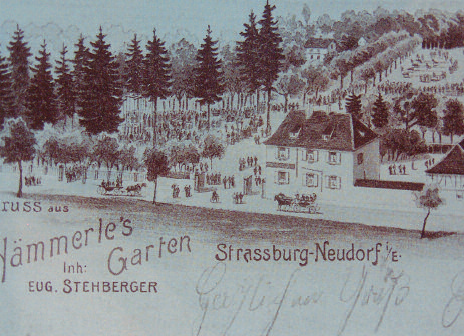 Gruss aus
Hämmerle's
Garten
Inh:
EUG. STEHBERGER
Strassburg-Neudorf i/E.